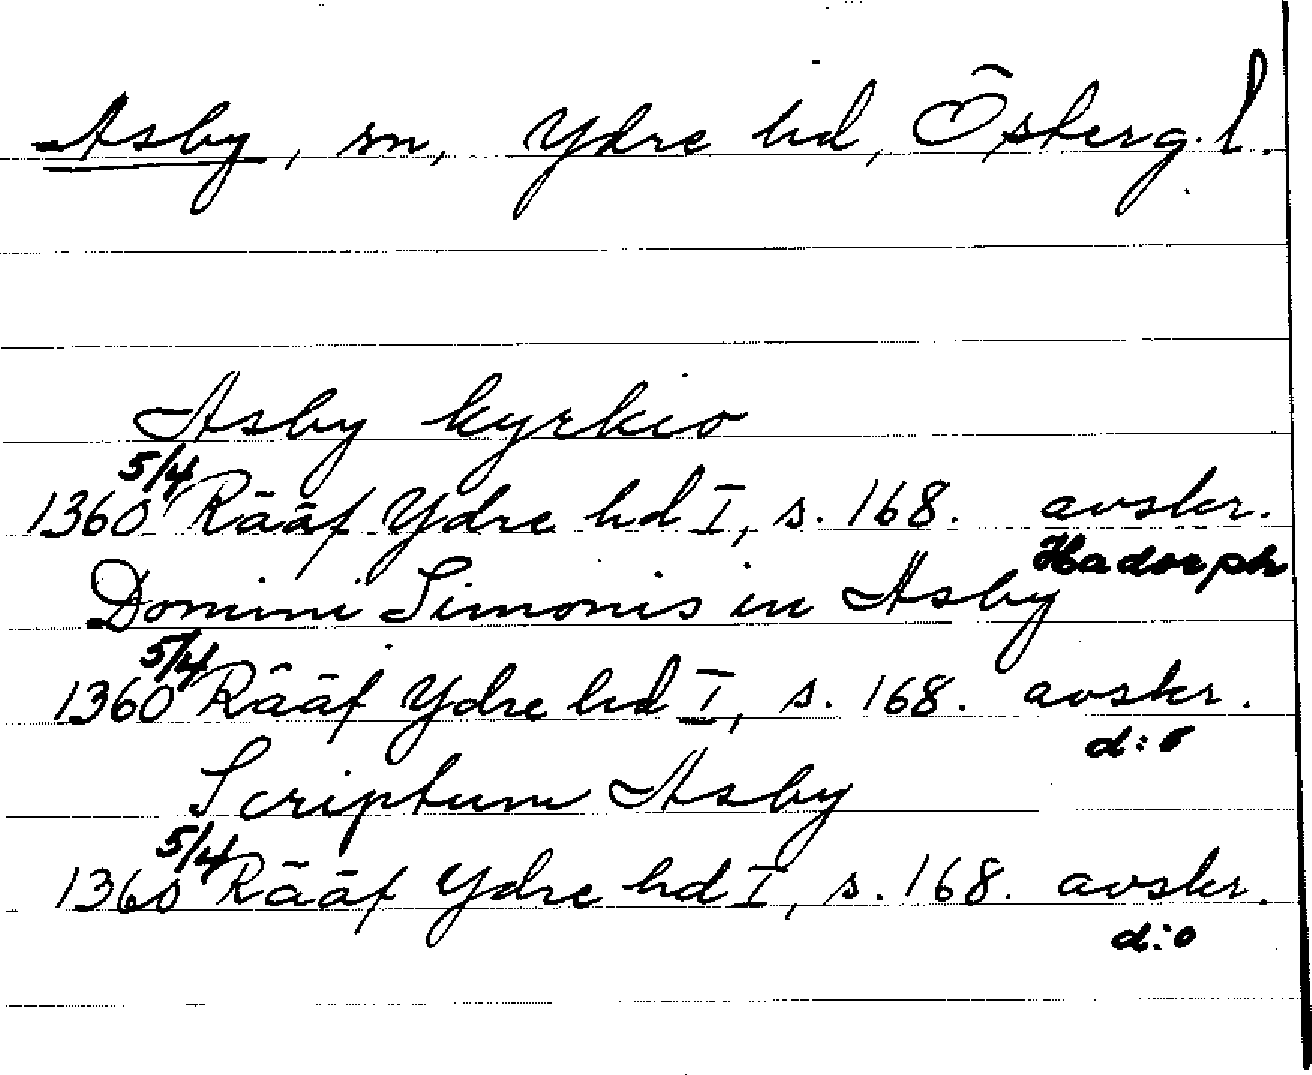 Asby, sn, Ydre hd, Österg. l.
Asby kyrkio
1360 5/4 Rääf Ydre hd I, s. 168. avskr.
Hadorph
Domini Simonis in Asby
1360 5/4 Rääf Ydre hd I, s. 168. avskr.
d:o
Scriptum Asby
1360 5/4 Rääf Ydre hd I, s. 168. avskr.
d:o